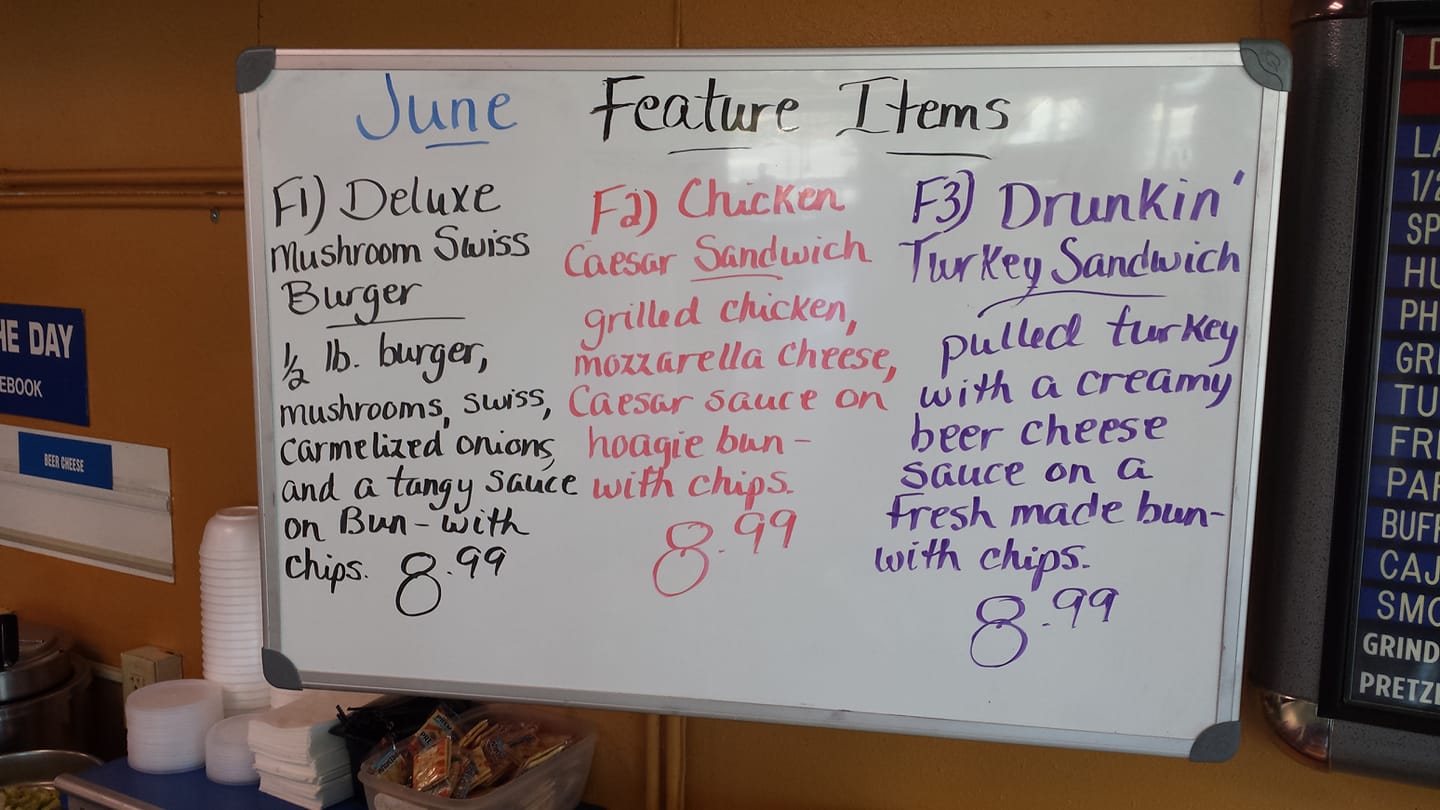 June Feature Items
F1) Deluxe
Mushroom Swiss
Burger
1/2 lb. burger,
mushrooms, swiss,
carmelized onions,
and a tangy sauce
on Bun - with
chips. 8.99
F2) Chicken
Caesar Sandwich
grilled chicken,
mozzarella cheese,
Caesar sauce on
hoagie bun -
with chips.
8.99
F3) Drunkin'
Turkey Sandwich
pulled turkey
with a creamy
beer cheese
sauce on a
fresh made bun-
with chips.
8.99
HE DAY
EBOOK
BEER CHEESE
LA
1/2
SP
HU
PH
GRI
TU
FRE
PAR
BUFF
CAJ
SMO
GRIND
PRETZE